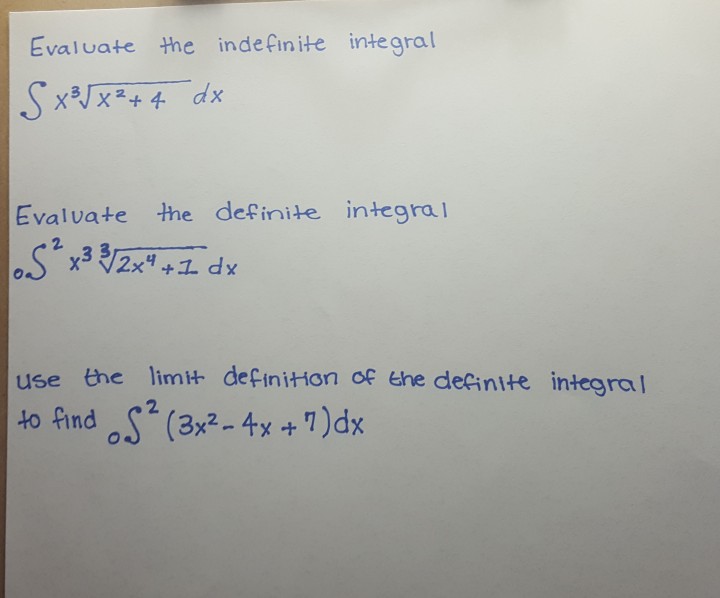 Evaluate the indefinite integral
∫ x³√(x² + 4) dx
Evaluate the definite integral
₀∫² x³ ∛(2x⁴ + 1) dx
use the limit definition of the definite integral
to find ₀∫² (3x² - 4x + 7)dx